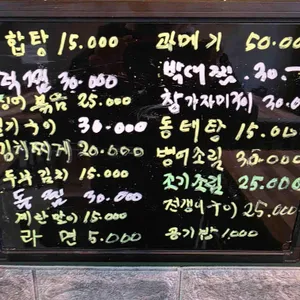 합탕 15.000
30.000
볶음 25.000
구이 30.000
김치찌개 20.000
두부김치 15.000
찜 30.000
계란말이 15.000
라면 5.000
과메기 50.00
박대찜 30.
참가자미구이 30.0
동태탕 15.00
병어조림 30.000
조기조림 25.000
전갱이구이 25.000
공기밥 1.000